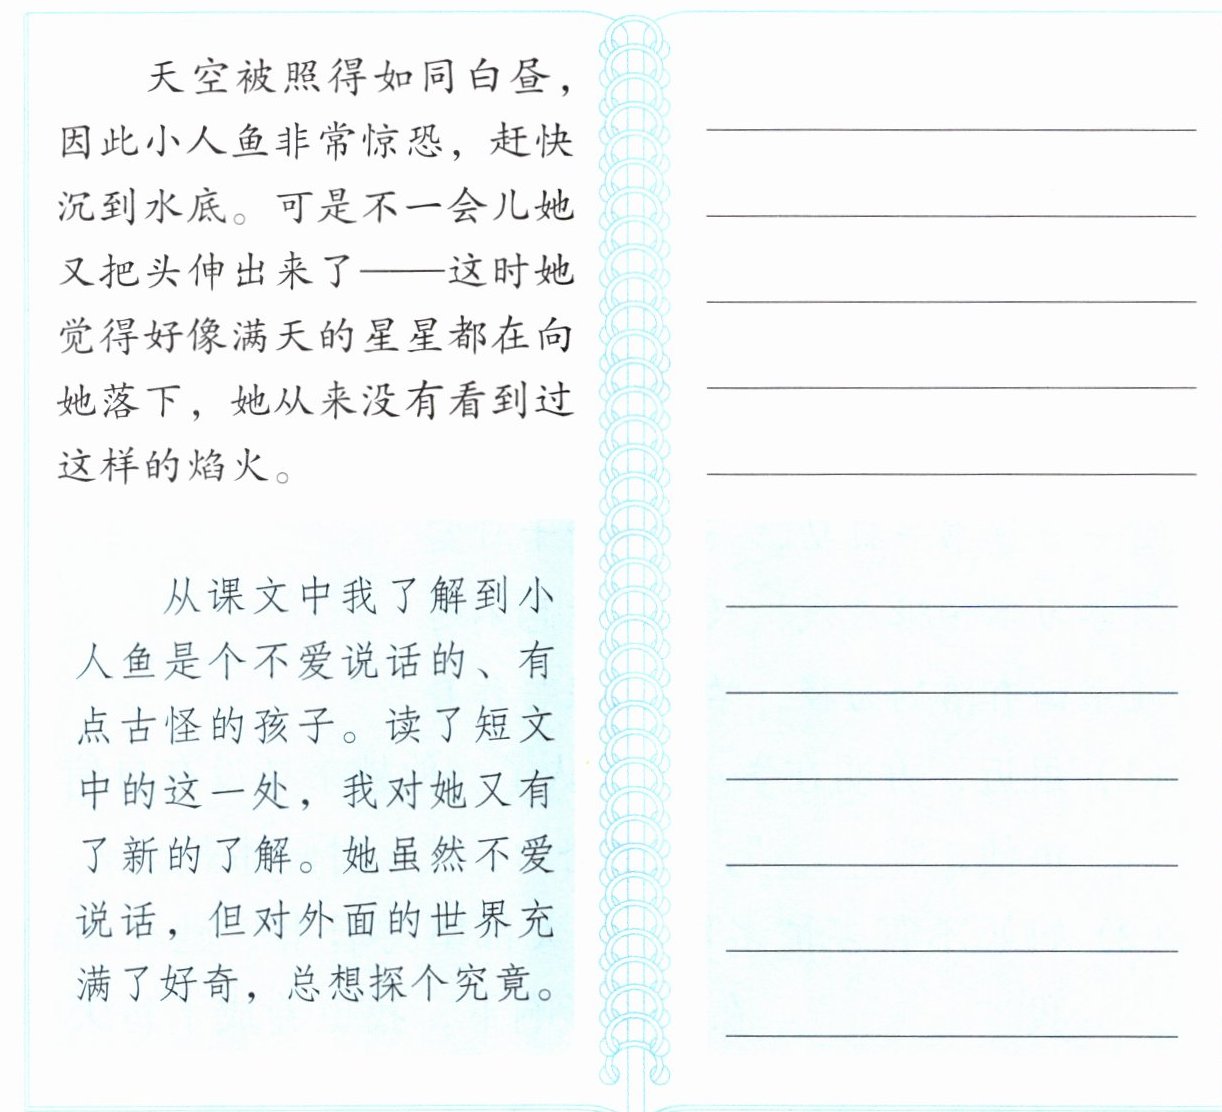 天空被照得如同白昼，
因此小人鱼非常惊恐，赶快
沉到水底。可是不一会儿她
又把头伸出来了——这时她
觉得好像满天的星星都在向
她落下，她从来没有看到过
这样的焰火。
从课文中我了解到小
人鱼是个不爱说话的、有
点古怪的孩子。读了短文
中的这一处，我对她又有
了新的了解。她虽然不爱
说话，但对外面的世界充
满了好奇，总想探个究竟。